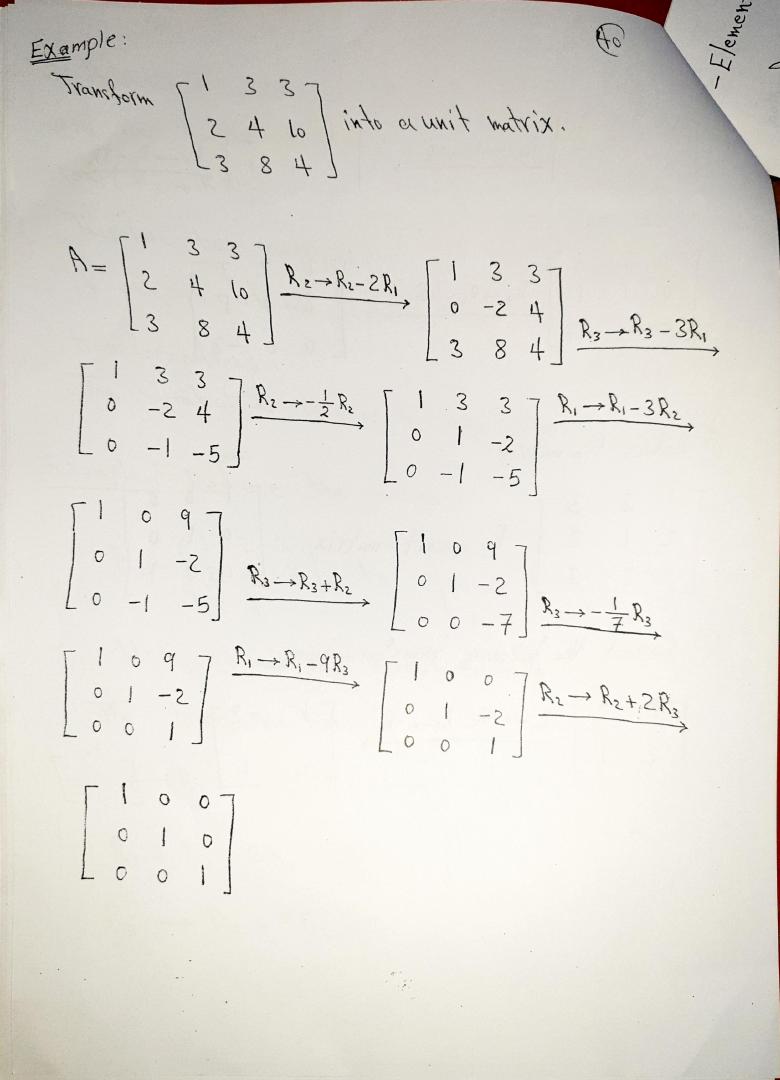 Example:
40
- Elemen
Transform [1 3 3
2 4 10
3 8 4] into a unit matrix.
A = [1 3 3
2 4 10
3 8 4] R₂→R₂-2R₁ [1 3 3
0 -2 4
3 8 4] R₃→R₃-3R₁
[1 3 3
0 -2 4
0 -1 -5] R₂→-1/2 R₂ [1 3 3
0 1 -2
0 -1 -5] R₁→R₁-3R₂
[1 0 9
0 1 -2
0 -1 -5] R₃→R₃+R₂ [1 0 9
0 1 -2
0 0 -7] R₃→-1/7 R₃
[1 0 9
0 1 -2
0 0 1] R₁→R₁-9R₃ [1 0 0
0 1 -2
0 0 1] R₂→R₂+2R₃
[1 0 0
0 1 0
0 0 1]